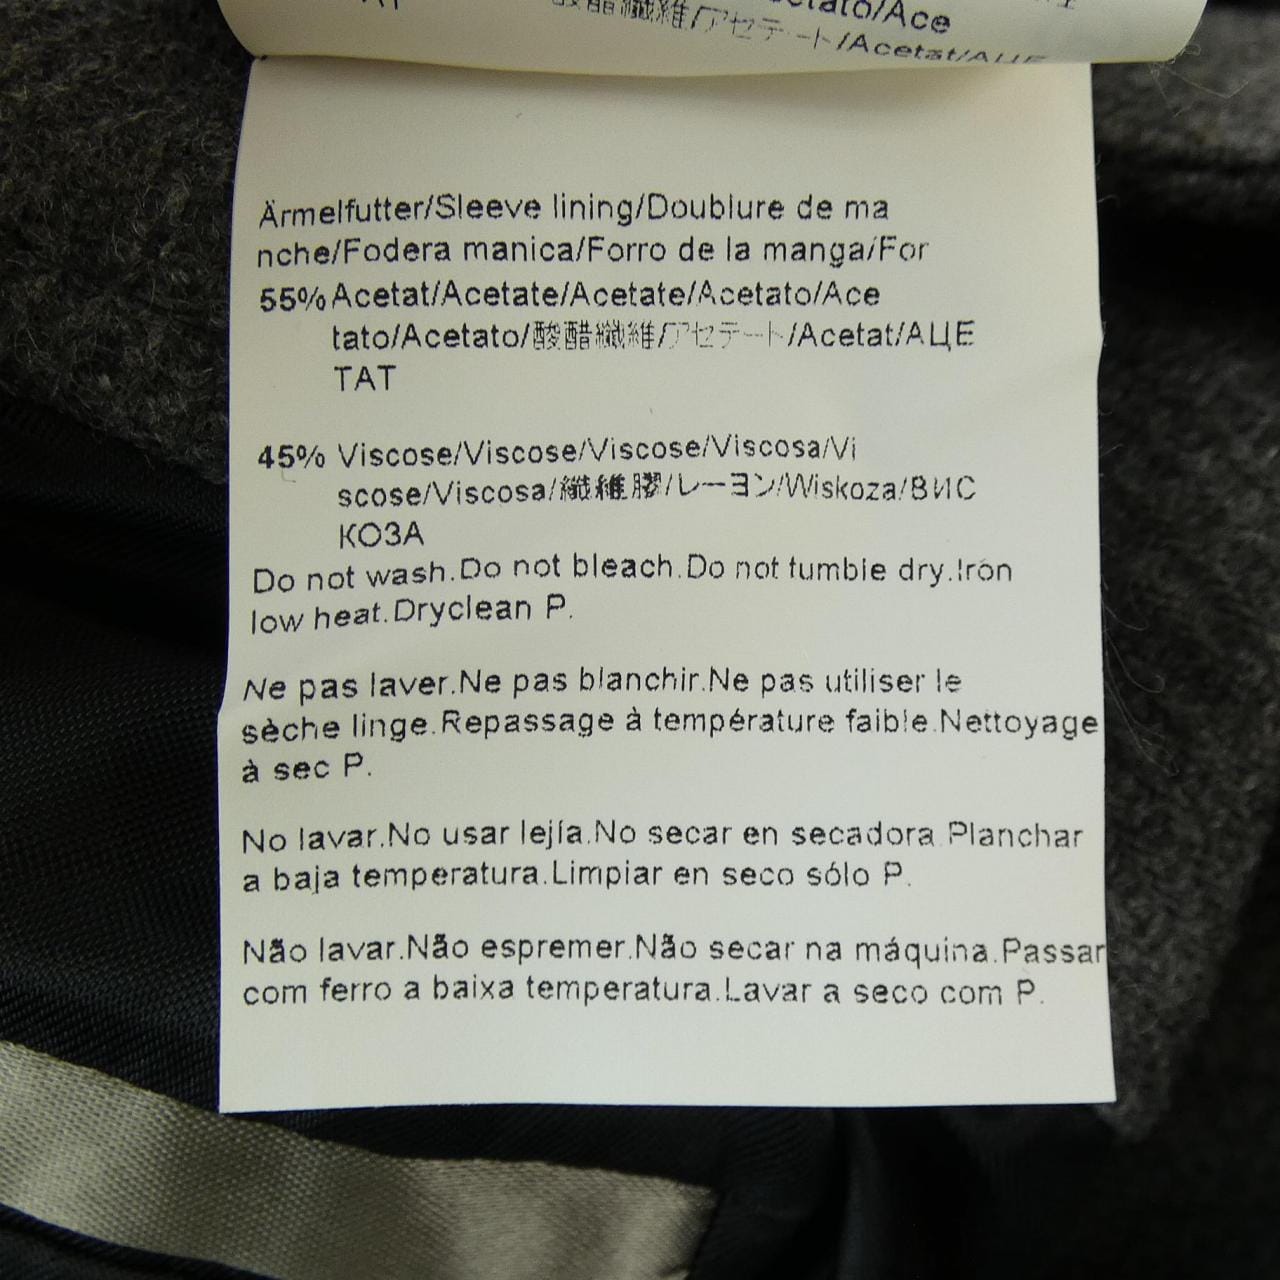 etato/Ace
酸醋纖維/アセテート/Acetat/АЦЕ
Ärmelfutter/Sleeve lining/Doublure de ma
nche/Fodera manica/Forro de la manga/For
55% Acetat/Acetate/Acetate/Acetato/Ace
tato/Acetato/酸醋纖維/アセテート/Acetat/АЦЕ
ТАТ
45% Viscose/Viscose/Viscose/Viscosa/Vi
scose/Viscosa/纖維膠/レーヨン/Wiskoza/ВИС
КОЗА
Do not wash.Do not bleach.Do not tumble dry.Iron
low heat.Dryclean P.
Ne pas laver.Ne pas blanchir.Ne pas utiliser le
sèche linge.Repassage à température faible.Nettoyage
à sec P.
No lavar.No usar lejía.No secar en secadora.Planchar
a baja temperatura.Limpiar en seco sólo P.
Não lavar.Não espremer.Não secar na máquina.Passar
com ferro a baixa temperatura.Lavar a seco com P.